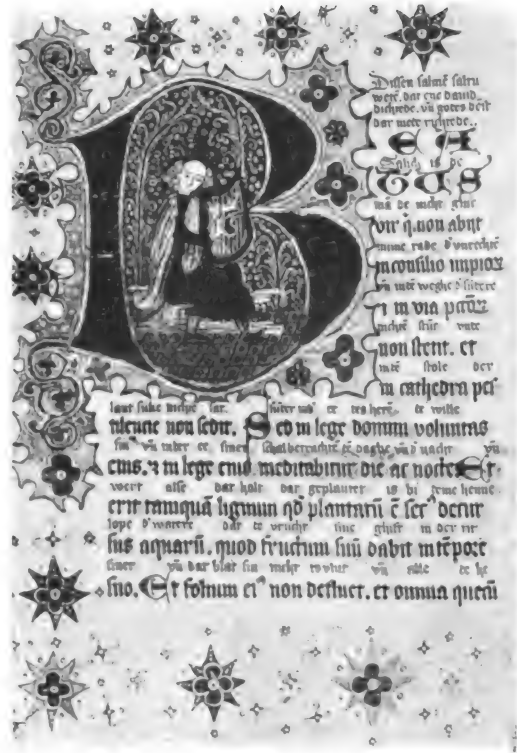 Dissen salme satte
were. dar ene dauid
dichtede. vñ godes
dar mete
B EA
Salich is de
TUS
mā de nicht ghic
vir q̄. non abijt
mme rade d'
in consilio impioꝝ
vñ inte weghe d'
⁊ in via pccōꝝ
nicht stūt vnte
non stetit. et
inte stole der
in cathedra pes
suke nicht sat. de wille
tilencie non sedit. Sed in lege domini voluntas
vñ in der ee siner daghe vñ nacht vñ
eius. ⁊ in lege eius meditabitur die ac nocte Et
wert alse dat holt dat geplantet is bi
erit tamquā lignum qd̄ plantatū ē sec⁹ decur
lope d' watere dat te vrucht sine ghift in der tit
sus aquarū. quod fructum suū dabit in tēpore
siner vñ dat blat sin nicht vñ alle
suo. Et folium ei⁹ non defluet. et omnia quecū